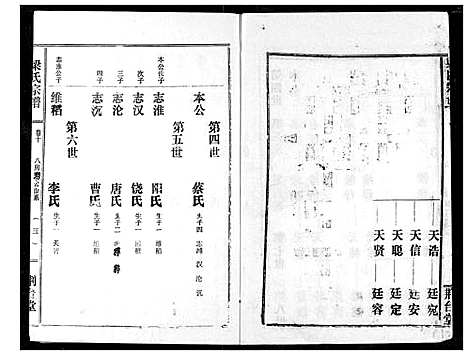 天浩——廷宛
天信——廷安
天聪——廷定
天贤——廷容
荆台堂
第四世
本公 蔡氏 生子四 志淮 汉 沦 沉
第五世
本公长子 志淮 阳氏 生子一 维稻
次子 志汉 饶氏 生子一 维稻
三子 志沦 唐氏 生子二 维
四子 志沉 曹氏 生子一 维稻
第六世
志淮公子 维稻 李氏 生子一 天
梁氏宗谱
卷十
三
荆台堂